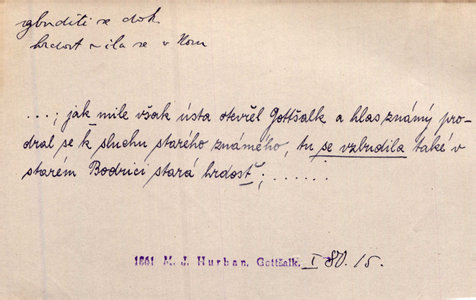 zbuditi se dok.
hrdost ~ila se v kom
...; jak mile však ústa otevřel Gottšalk a hlas známý pro-
dral se k sluchu starého známého, tu se vzbudila také v
starém Bodrici stará hrdost; ......
1861 M. J. Hurban, Gottšalk. I SV. 15.